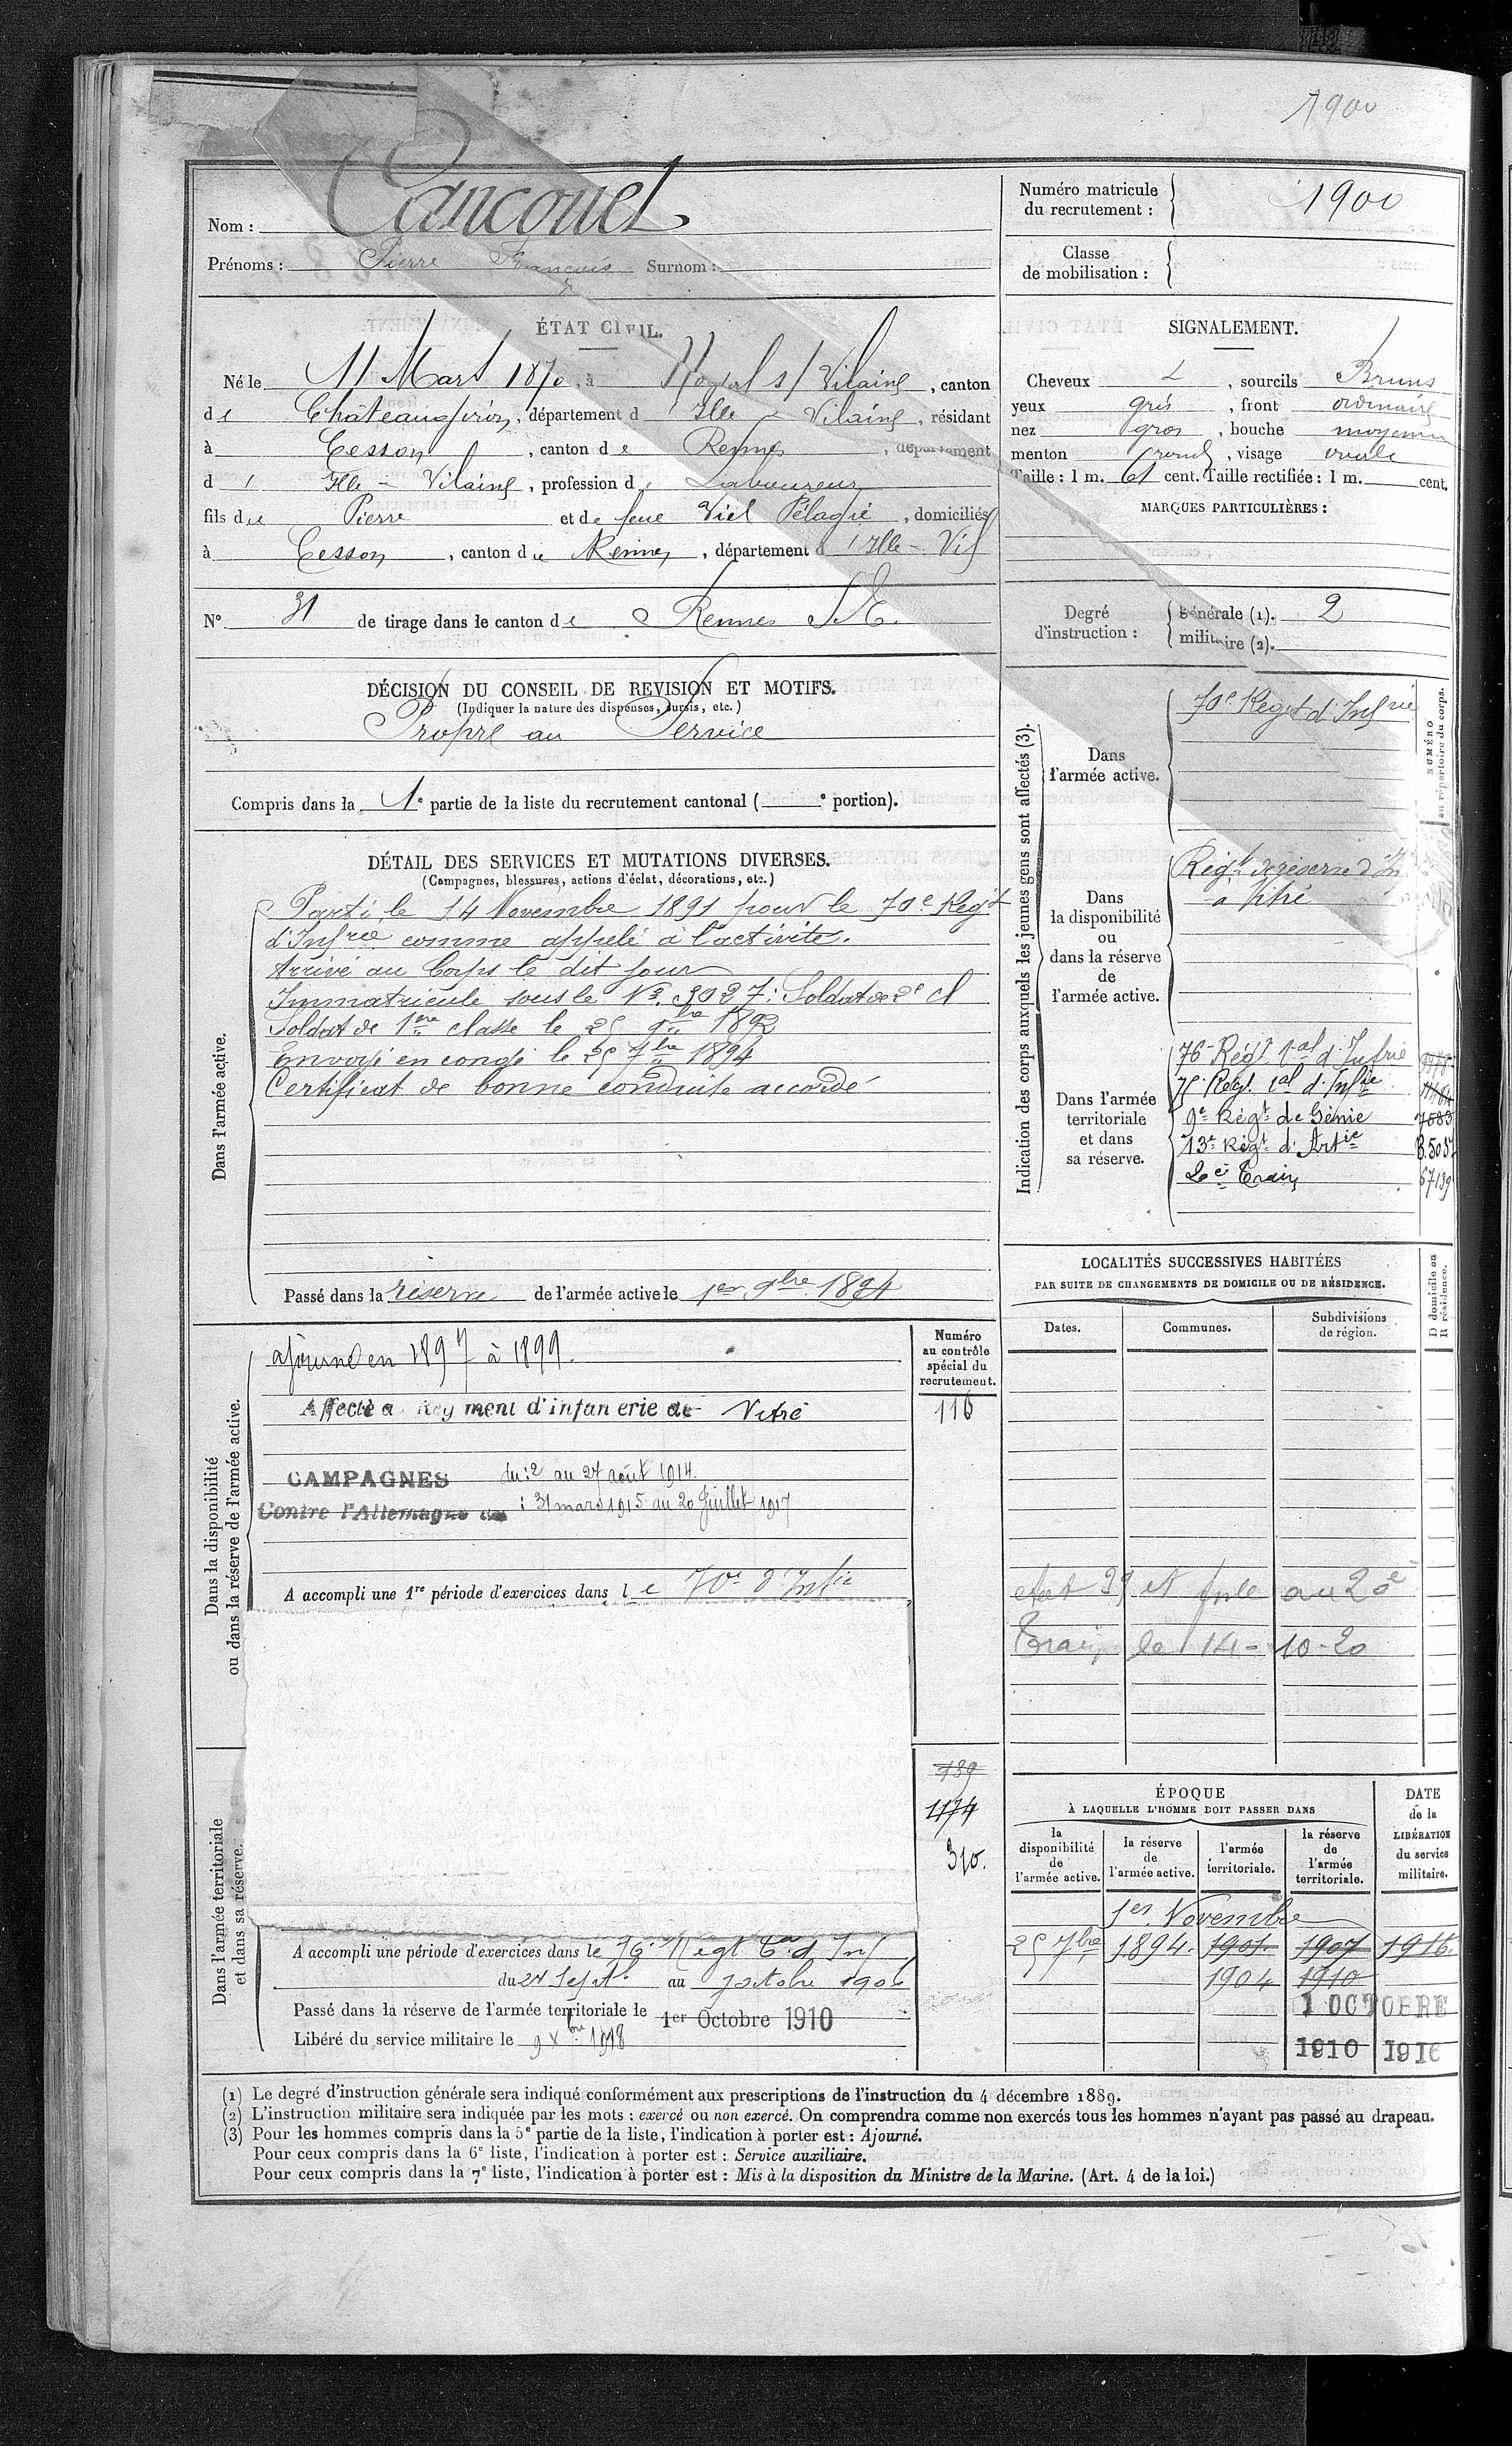 1900
Nom : Cancouet
Prénoms : Pierre François Surnom :
Numéro matricule du recrutement : 1900
Classe de mobilisation :
ÉTAT CIVIL.
Né le 11 Mars 1870, à Noyal s/ Vilaine, canton
de Châteaugiron, département d'Ille - Vilaine, résidant
à Cesson, canton de Rennes, département
d'Ille - Vilaine, profession de Laboureur
fils de Pierre et de feue Viel Pélagie, domiciliés
à Cesson, canton de Rennes, département d'Ille - Vil
N° 31 de tirage dans le canton de Rennes S.E.
SIGNALEMENT.
Cheveux , sourcils Bruns
yeux gris, front ordinaire
nez gros, bouche moyenne
menton rond, visage ovale
Taille : 1 m. 61 cent. Taille rectifiée : 1 m. cent.
MARQUES PARTICULIÈRES :
Degré d'instruction : générale (1). 2
militaire (2).
DÉCISION DU CONSEIL DE REVISION ET MOTIFS.
(Indiquer la nature des dispenses, sursis, etc.)
Propre au Service
Compris dans la 1e partie de la liste du recrutement cantonal ( e portion).
DÉTAIL DES SERVICES ET MUTATIONS DIVERSES.
(Campagnes, blessures, actions d'éclat, décorations, etc.)
Dans l'armée active.
Parti le 14 Novembre 1891 pour le 70e Régt
d'Infrie comme appelé à l'activité.
Arrivé au Corps le dit jour
Immatriculé sous le No. 3027 : Soldat de 2e cl
Soldat de 1ère classe le 25 9bre 1892
Envoyé en congé le 25 7bre 1894
Certificat de bonne conduite accordé
Passé dans la réserve de l'armée active le 1er 9bre 1894
Indication des corps auxquels les jeunes gens sont affectés (3).
NUMÉRO au répertoire du corps.
Dans l'armée active.
70e Régt d'Infrie
Dans la disponibilité ou dans la réserve de l'armée active.
Régt de réserve d'Inf
à Vitré
Dans l'armée territoriale et dans sa réserve.
76e Régt tal d'Infrie
75e Régt tal d'Infie
9e Régt de Génie 7083
13e Régt d'Artie B.5057
20e Train 67139
Dans la disponibilité ou dans la réserve de l'armée active.
Numéro au contrôle spécial du recrutement.
ajourné en 1897 à 1899.
Affecté a Régiment d'infanterie de Vitré 116
CAMPAGNES du : 2 au 27 août 1914.
Contre l'Allemagne du : 31 mars 1915 au 20 Juillet 1917
A accompli une 1re période d'exercices dans le 70e d'Infie
LOCALITÉS SUCCESSIVES HABITÉES
PAR SUITE DE CHANGEMENTS DE DOMICILE OU DE RÉSIDENCE.
Dates. Communes. Subdivisions de région. D domicile ou R résidence.
etat 39 et fnle au 20e
Train le 14-10-20
Dans l'armée territoriale et dans sa réserve.
139
1174
310.
A accompli une période d'exercices dans le 76e Régt tal d'Inf
du 24 Septbre au 7 octobre 1906
Passé dans la réserve de l'armée territoriale le 1er Octobre 1910
Libéré du service militaire le 9 Xbre 1918
ÉPOQUE
À LAQUELLE L'HOMME DOIT PASSER DANS
DATE de la LIBÉRATION du service militaire.
la disponibilité de l'armée active. la réserve de l'armée active. l'armée territoriale. la réserve de l'armée territoriale.
1er Novembre
25 7bre 1894. 1901. 1907 1916.
1904 1910
1 OCTOBRE
1910 1916
(1) Le degré d'instruction générale sera indiqué conformément aux prescriptions de l'instruction du 4 décembre 1889.
(2) L'instruction militaire sera indiquée par les mots : exercé ou non exercé. On comprendra comme non exercés tous les hommes n'ayant pas passé au drapeau.
(3) Pour les hommes compris dans la 5e partie de la liste, l'indication à porter est : Ajourné.
Pour ceux compris dans la 6e liste, l'indication à porter est : Service auxiliaire.
Pour ceux compris dans la 7e liste, l'indication à porter est : Mis à la disposition du Ministre de la Marine. (Art. 4 de la loi.)